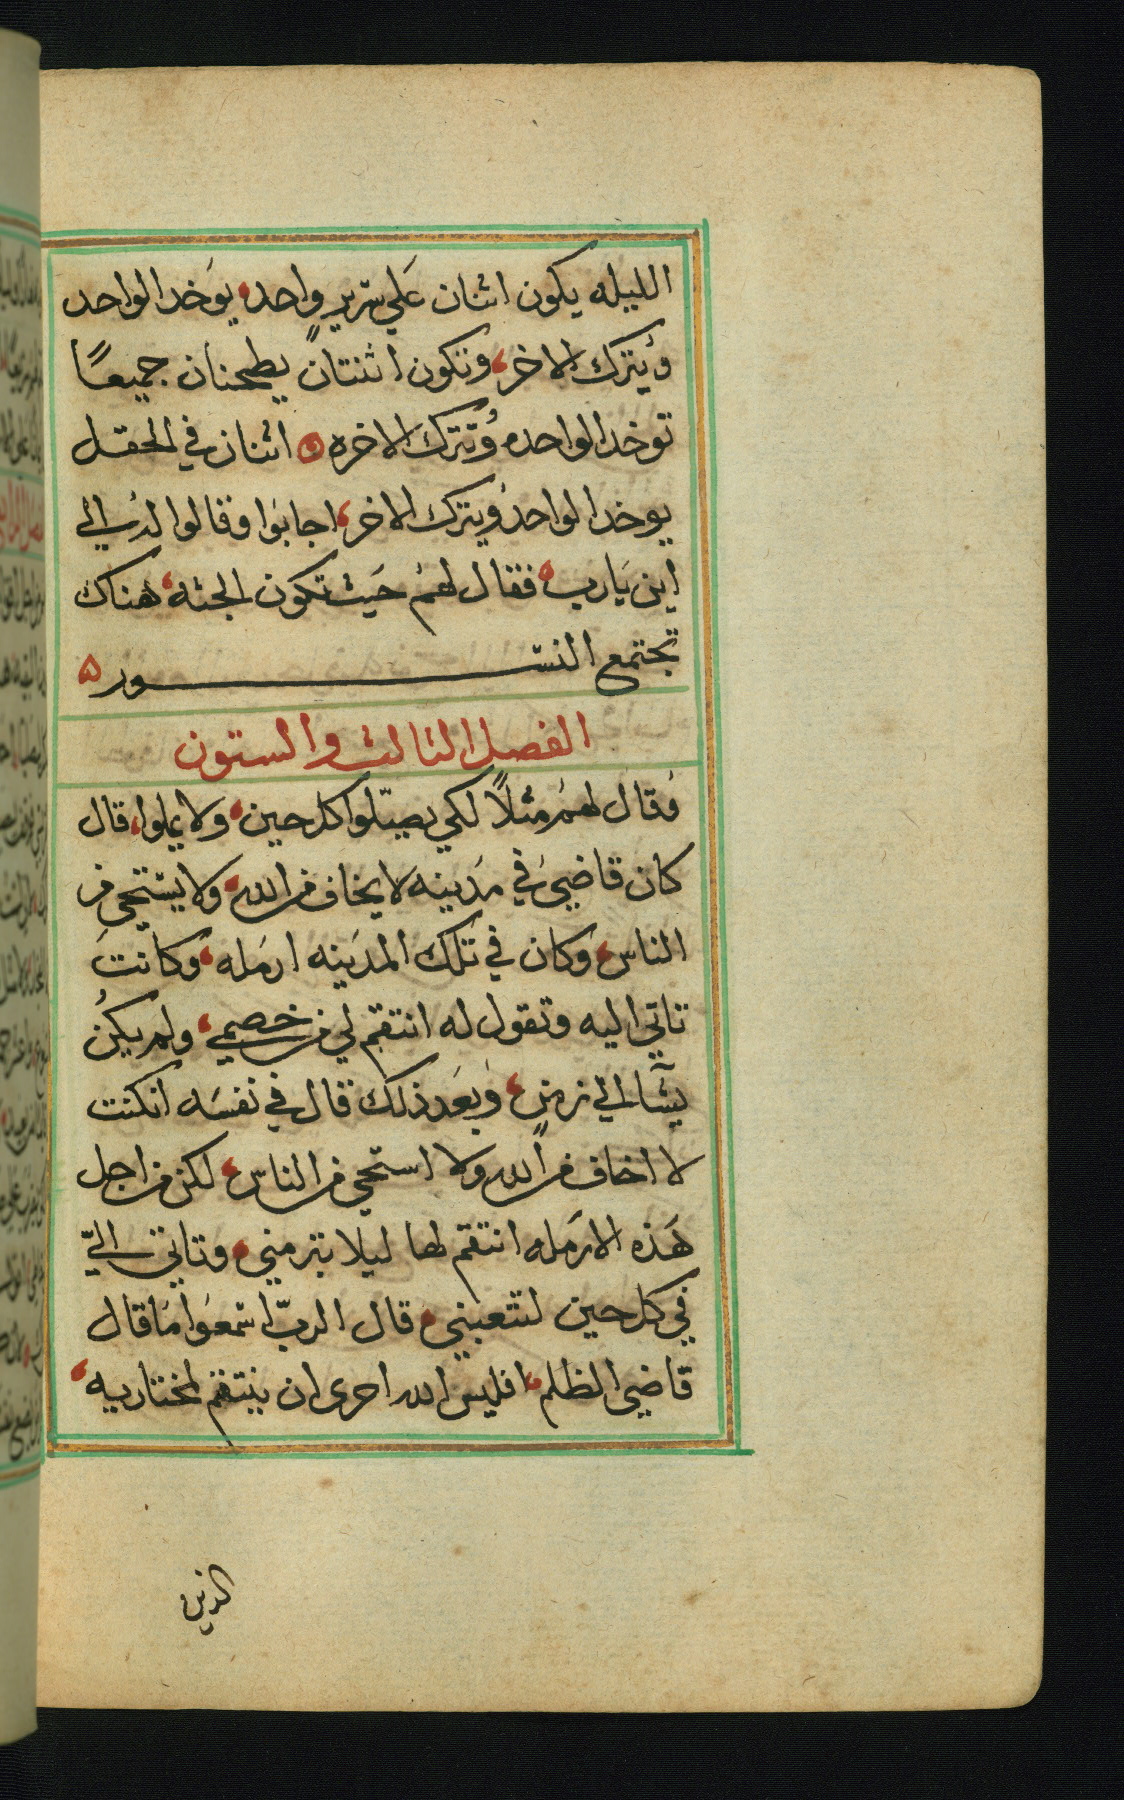 الليله يكون اثنان علي سرير واحد يوخد الواحد
ويترك الاخر وتكون اثنتان يطحنان جميعًا
توخد الواحده وتترك الاخره اثنان في الحقل
يوخد الواحد ويترك الاخر اجابوا وقالوا له الي
اين يارب فقال لهم حيث تكون الجثه هناك
تجتمع النسور
الفصل الثالث والستون
فقال لهم مثلًا لكي يصلّوا كل حين ولا يملوا قال
كان قاضي في مدينه لا يخاف من الله ولا يستحي من
الناس وكان في تلك المدينه ارمله وكانت
تاتي اليه وتقول له انتقم لي من خصمي ولم يكن
يشآ الي زمن وبعد ذلك قال في نفسه ان كنت
لا اخاف من الله ولا استحي من الناس لكن من اجل
هذه الارمله انتقم لها ليلا تبرمني وتاتي اليّ
في كل حين لتتعبني قال الربّ اسمعوا ما قال
قاضي الظلم افليس الله احرى ان ينتقم لمختاريه
الذين